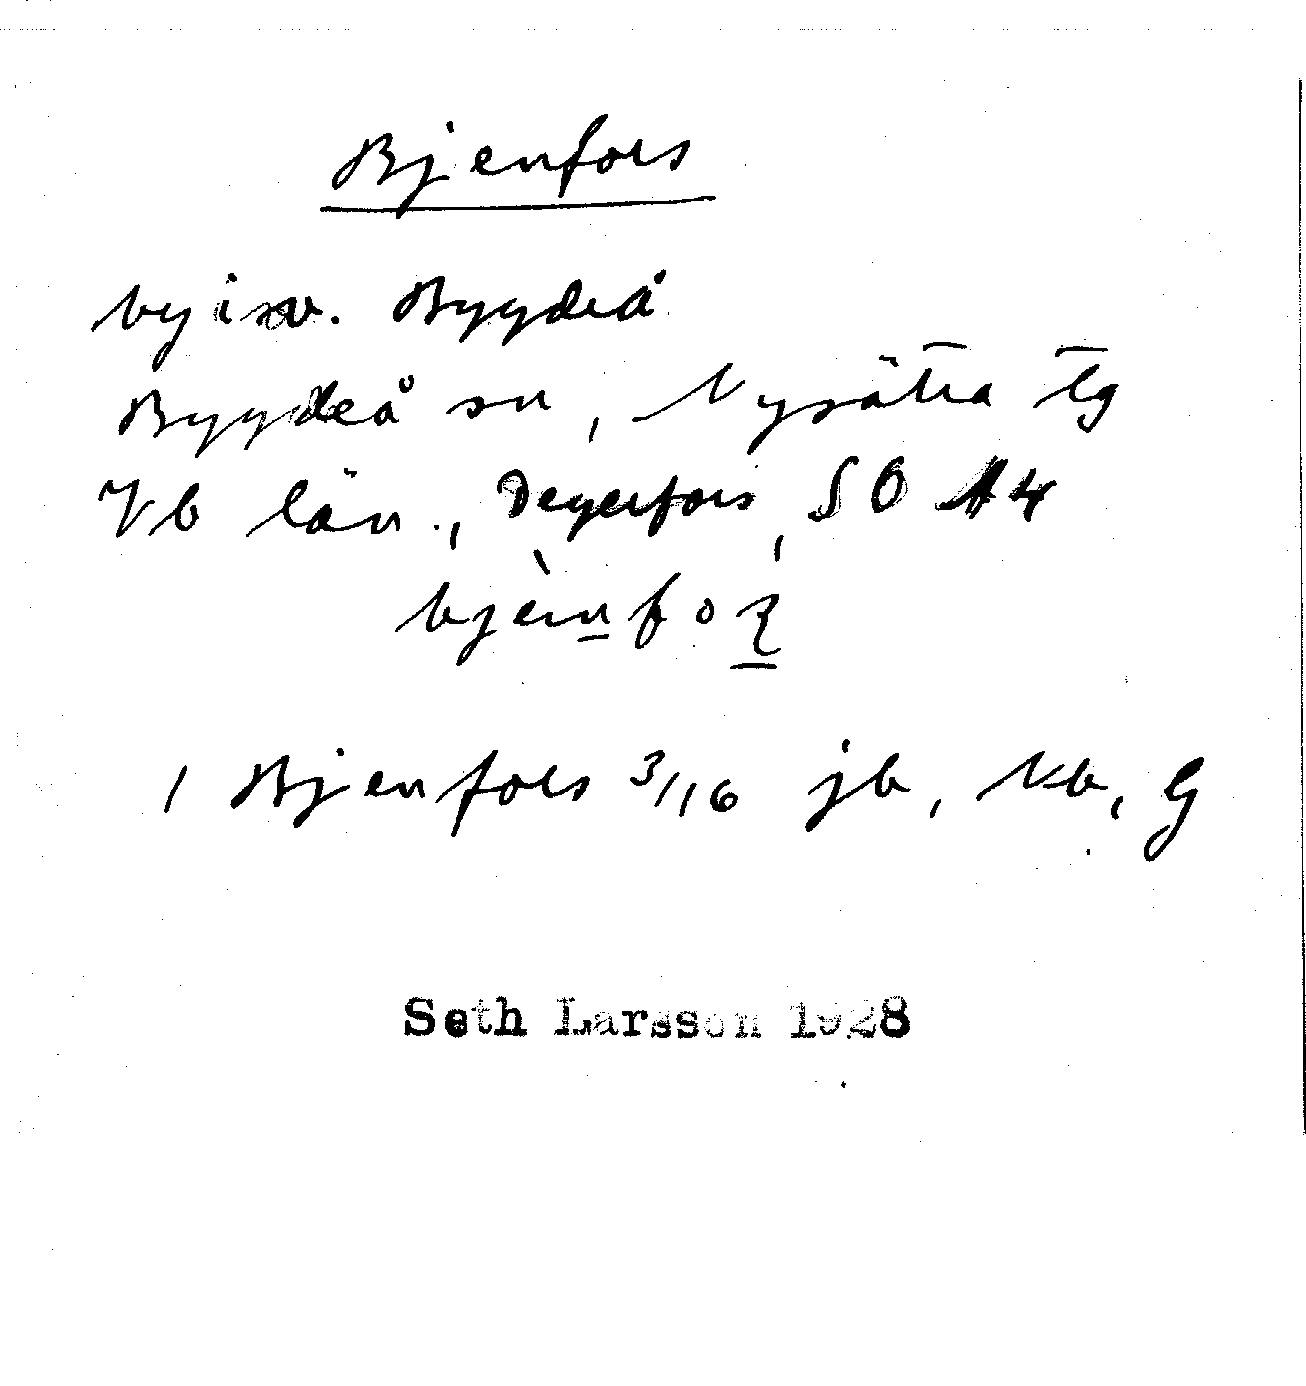 Bjenfors
by i sv. Bygdeå
Bygdeå sn, Nysätra tg
Vb län., Degerfors, SO A4
1 Bjenfors 3/16 jb, Kb, G
Seth Larsson 1928